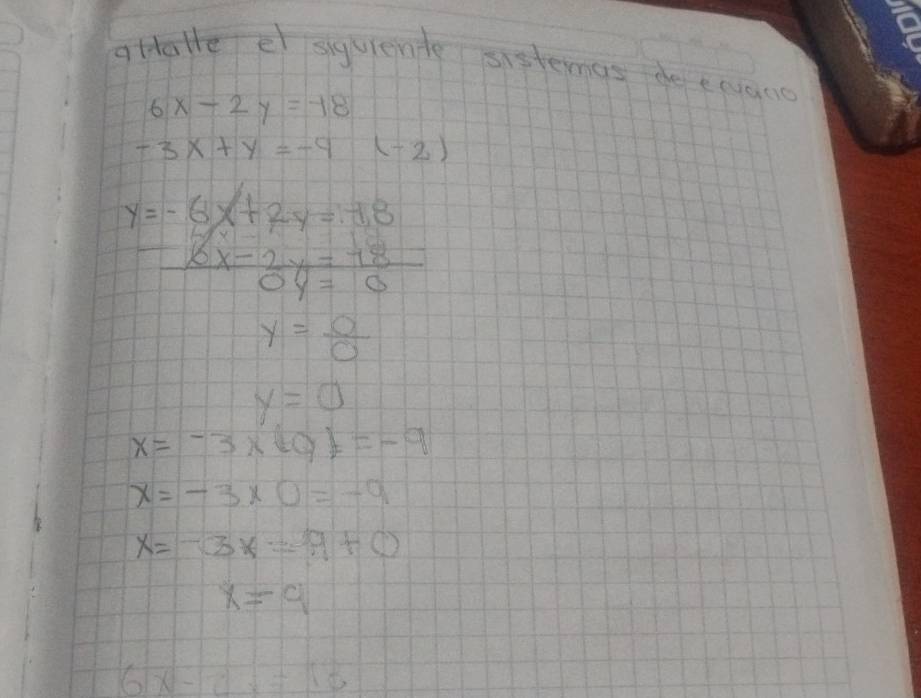 a Halle el siguiente sistemas de ecuacio
6x - 2y = 18
-3x + y = -9 (-2)
y = - 6x + 2y = 18
6x - 2y = 18
0y = 0
y = 0/0
y = 0
x = -3x (0) = -9
x = -3x 0 = -9
x = -3x = 9 + 0
x = 9
6x -